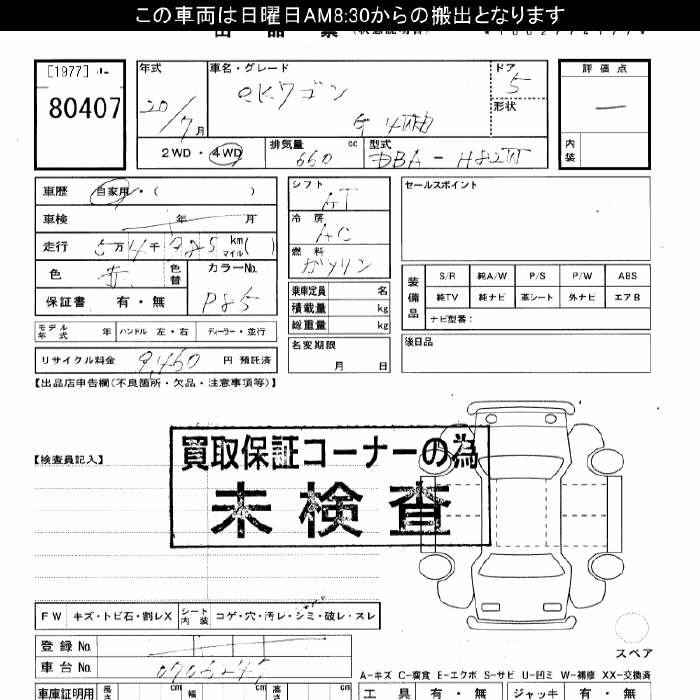 この車両は日曜日AM8:30からの搬出となります
[1977]
80407
年式
20/7月
車名・グレード
eKワゴン
G 4WD
ドア
5
形状
評価点
―
内装
2WD・4WD
排気量 660 cc
型式 DBA-H82W
車歴 自家用・( )
車検 年 月
走行 5万4千985 km マイル( )
色 赤 色替
カラーNo. P85
保証書 有・無
モデル年式 年 ハンドル 左・右 ディーラー・並行
リサイクル料金 9,460 円 預託済
シフト AT
冷房 AC
燃料 ガソリン
乗車定員 名
積載量 kg
総重量 kg
名変期限
月 日
セールスポイント
装備品
S/R 純A/W P/S P/W ABS
純TV 純ナビ 革シート 外ナビ エアB
ナビ型番:
後日品
【出品店申告欄(不良箇所・欠品・注意事項等)】
【検査員記入】
買取保証コーナーの為
未検査
FW キズ・トビ石・割レX シート内装 コゲ・穴・汚レ・シミ・破レ・スレ
スペア
登録No.
車台No. 0703247
A-キズ C-腐食 E-エクボ S-サビ U-凹ミ W-補修 XX-交換済
車庫証明用 長さ cm 幅 cm 高さ cm
工具 有・無 ジャッキ 有・無